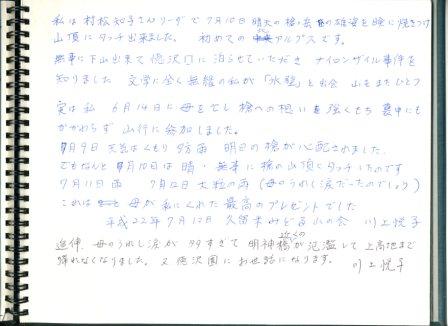 私は村松知子さんリーダで7月10日晴天の槍ヶ岳の雄姿を瞼に焼きつけ
山頂にタッチ出来ました。初めてのアルプスです。
無事に下山出来て徳沢口に泊らせていただき ナイロンザイル事件を
知りました 文学に全く無縁の私が「氷壁」と出会 山をまたひとつ
実は私 6月14日に母を亡し 槍への想いを強くもち 喪中にも
かかわらず 山行に参加しました。
7月9日 天気はくもり夕方雨 明日の槍が心配されました。
でもなんと7月10日は晴・無事に槍の山頂にタッチしたのです
7月11日 雨 7月12日 大粒の雨(母のうれし涙だったのでしょう)
これは母が私にくれた最高のプレゼントでした
平成22年7月12日 久留米みどり山の会 川上悦子
追伸 母のうれし涙が多すぎて 明神橋近くのが氾濫して 上高地まで
帰れなくなりました。又徳沢園にお世話になります。 川上悦子